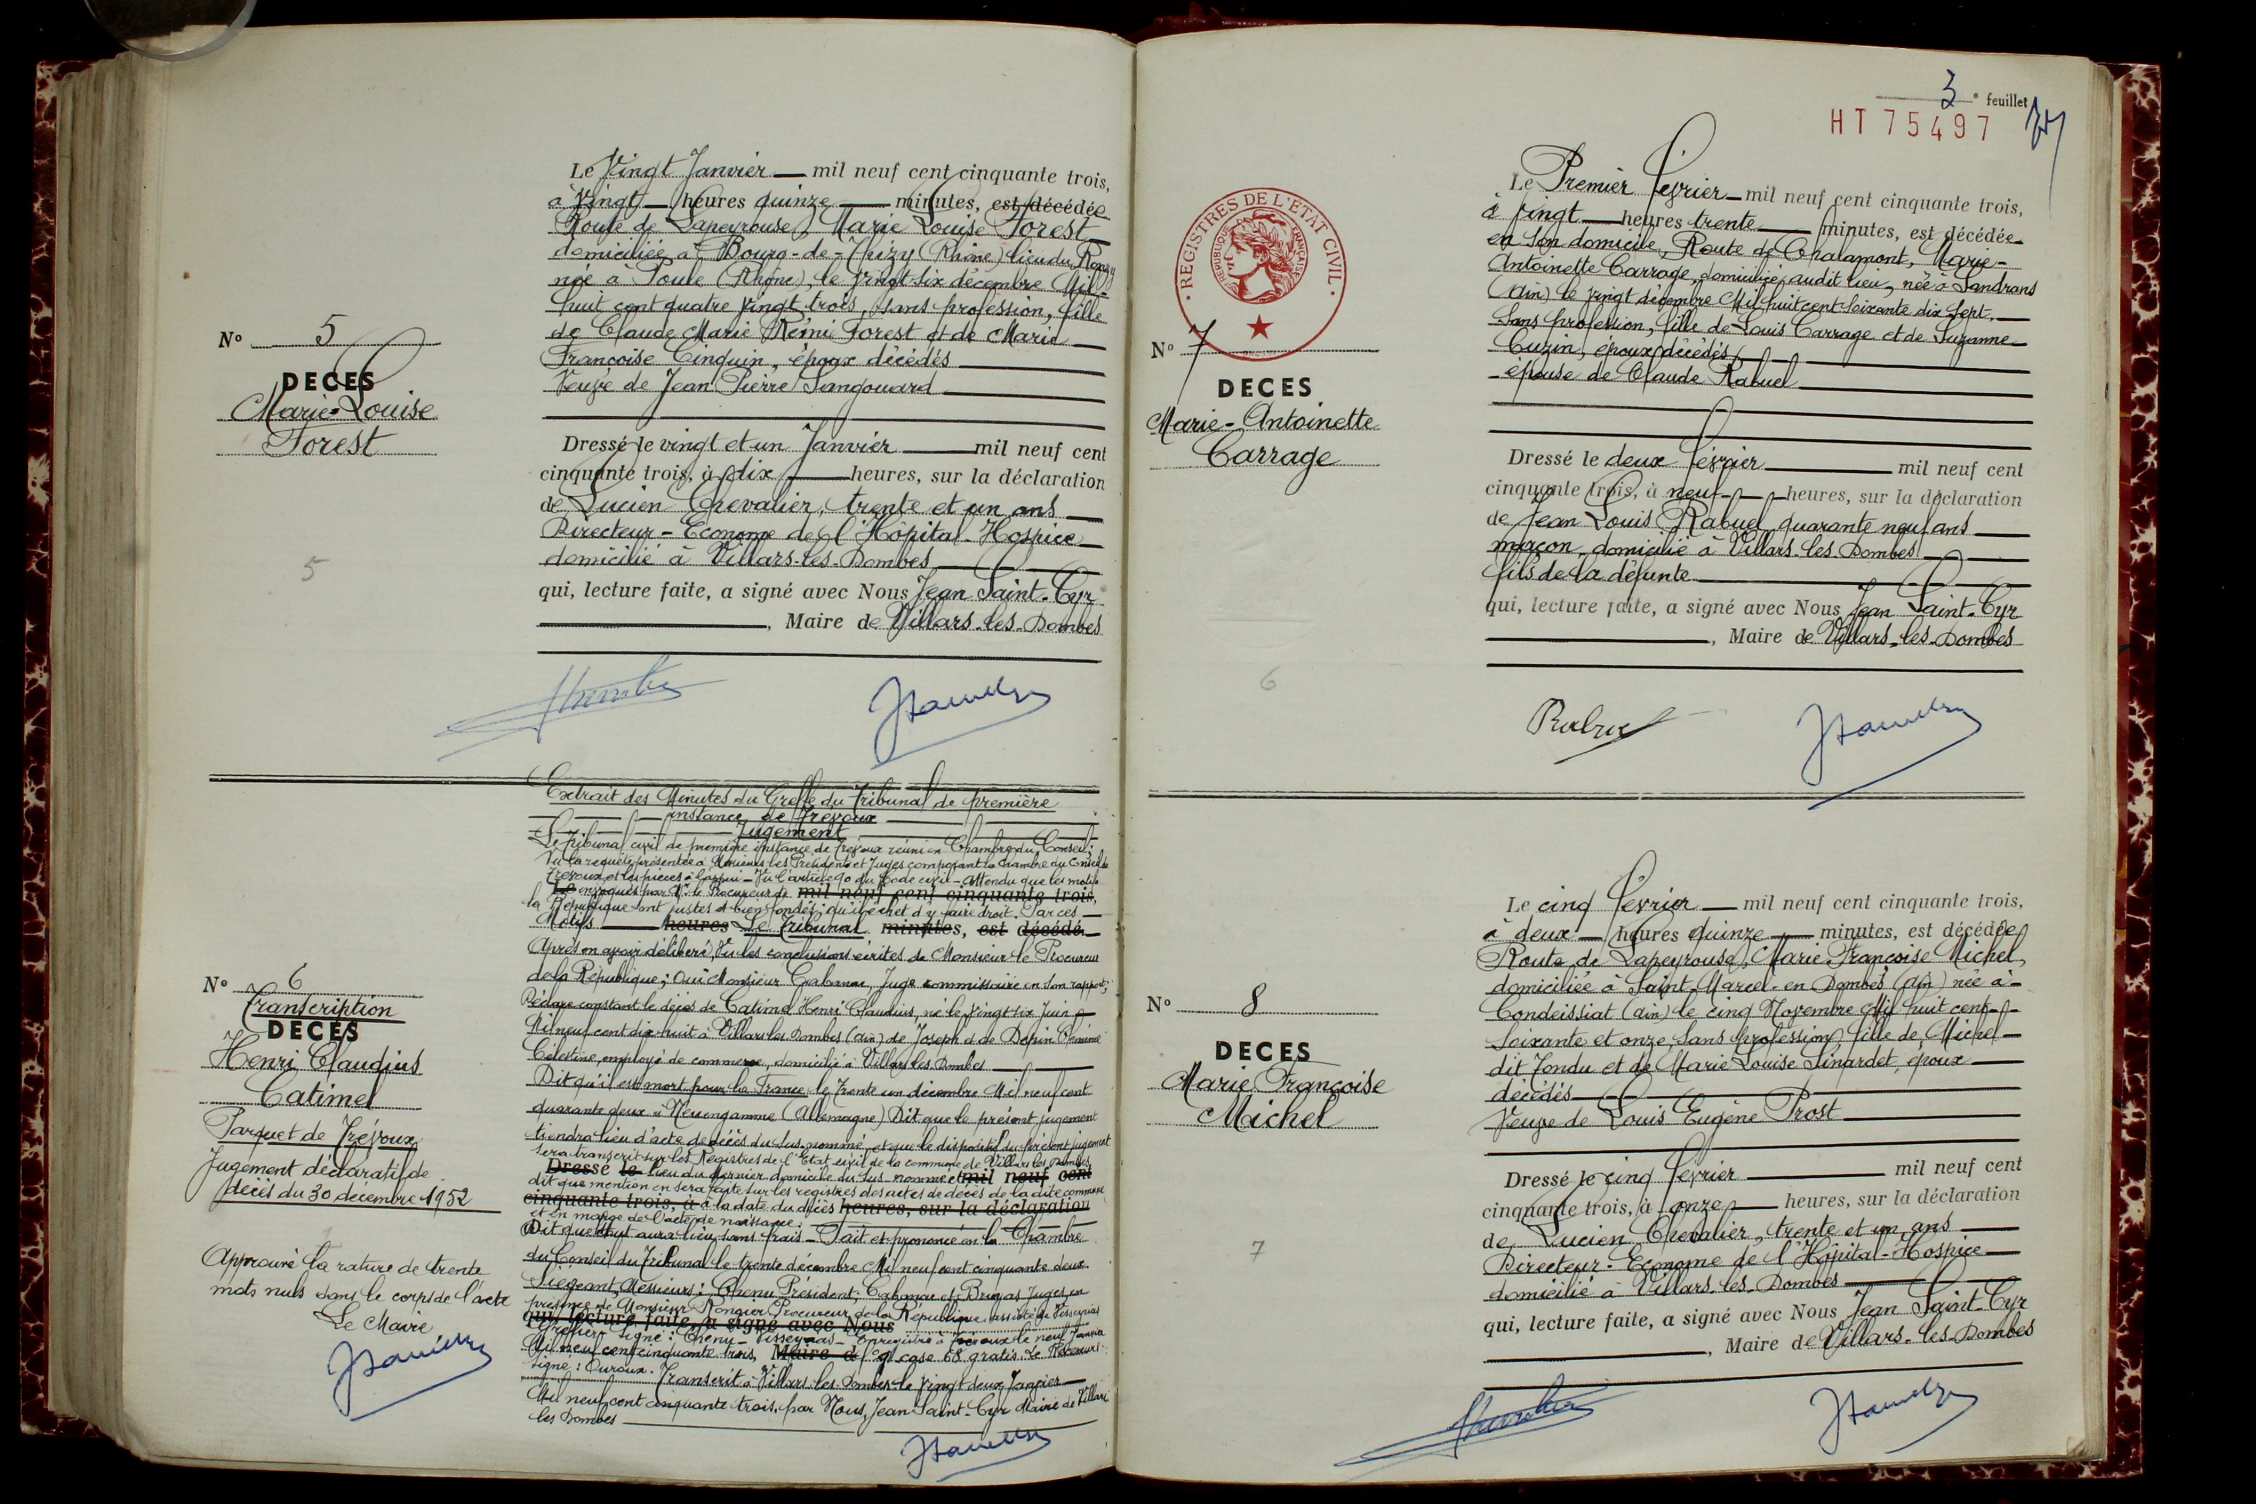 Nº 5
DECES
Marie-Louise
Forest
5
Le Vingt Janvier mil neuf cent cinquante trois,
à vingt heures quinze minutes, est décédée
Route de Lapeyrouse, Marie Louise Forest
domiciliée à Bourg-de-Thizy (Rhône) lieu du Ronzy
née à Poule (Rhône), le vingt-six décembre Mil-
huit cent quatre vingt trois, sans profession, fille
de Claude Marie Rémi Forest et de Marie
Françoise Cinquin, époux décédés
Veuve de Jean Pierre Sangouard
Dressé le vingt et un Janvier mil neuf cent
cinquante trois, à dix heures, sur la déclaration
de Lucien Chevalier, trente et un ans
Directeur-Econome de l'Hôpital-Hospice
domicilié à Villars-les-Dombes
qui, lecture faite, a signé avec Nous Jean Saint-Cyr
, Maire de Villars-les-Dombes
Nº 6
Transcription
DECES
Henri Claudius
Catimel
Parquet de Trévoux
Jugement déclaratif de
décès du 30 décembre 1952
Approuvé la rature de trente
mots nuls dans le corps de l'acte
Le Maire
Extrait des Minutes du Greffe du Tribunal de première
instance de Trévoux
Jugement
Le Tribunal civil de première instance de Trévoux réuni en Chambre du Conseil;
Vu la requête présentée à Messieurs les Présidents et Juges composant la Chambre du Conseil de
Trévoux et les pièces à l'appui - Vu l'article 90 du Code civil - Attendu que les motifs
Le invoqués par Mr le Procureur de mil neuf cent cinquante trois,
la République sont justes et bien fondés; qu'il échet d'y faire droit. Par ces
Motifs heures Le Tribunal minutes, est décédé
Après en avoir délibéré, Vu les conclusions écrites de Monsieur le Procureur
de la République; Ouï Monsieur Cabanac, Juge commissaire en son rapport;
Déclare constant le décès de Catimel Henri Claudius, né le vingt six Juin
Mil neuf cent dix huit à Villars les Dombes (Ain) de Joseph et de Depin
Célestine, employé de commerce, domicilié à Villars les Dombes
Dit qu'il est mort pour la France le trente un décembre Mil neuf cent
quarante deux à Neuengamme (Allemagne) Dit que le présent jugement
tiendra lieu d'acte de décès du sus-nommé, et que le dispositif du présent jugement
sera transcrit sur les Registres de l'Etat civil de la commune de Villars les Dombes
Dressé le lieu du dernier domicile du sus nommé et mil neuf cent
dit que mention en sera faite sur les registres des actes de décès de la dite commune
cinquante trois, à à la date du décès heures, sur la déclaration
et en marge de l'acte de naissance;
Dit que tout aura lieu sans frais - Fait et prononcé en la Chambre
du Conseil du Tribunal le trente décembre Mil neuf cent cinquante deux
Siégeant, Messieurs: Chenu Président; Cabanac et Brugas Juges en
présence de Monsieur Rongier Procureur de la République assisté de Visseyrias
qui, lecture faite, a signé avec Nous
Greffier signé: Chenu - Visseyrias - Enregistré à Trévoux le neuf Janvier
Mil neuf cent cinquante trois, Maire d fº 91 case 68 gratis. Le Receveur
signé: Ouroux. Transcrit à Villars les Dombes le vingt deux Janvier
Mil neuf cent cinquante trois, par Nous, Jean Saint-Cyr Maire de Villars
les Dombes
3 e feuillet
HT 75497
REGISTRES DE L'ETAT CIVIL
REPUBLIQUE FRANÇAISE
Nº 7
DECES
Marie-Antoinette
Carrage
6
Le Premier Février mil neuf cent cinquante trois,
à vingt heures trente minutes, est décédée
en son domicile, Route de Chalamont, Marie-
Antoinette Carrage, domiciliée audit lieu, née à Sandrans
(Ain) le vingt décembre Mil huit cent soixante dix sept,
sans profession, fille de Louis Carrage et de Suzanne
Cuzin, époux décédés,
épouse de Claude Rabuel
Dressé le deux Février mil neuf cent
cinquante trois, à neuf heures, sur la déclaration
de Jean Louis Rabuel, quarante neuf ans
maçon, domicilié à Villars-les-Dombes
fils de la défunte
qui, lecture faite, a signé avec Nous Jean Saint-Cyr
, Maire de Villars-les-Dombes
Rabuel
Nº 8
DECES
Marie Françoise
Michel
7
Le cinq Février mil neuf cent cinquante trois,
à deux heures quinze minutes, est décédée
Route de Lapeyrouse, Marie Françoise Michel,
domiciliée à Saint-Marcel-en Dombes (Ain) née à
Condeissiat (Ain) le cinq Novembre Mil huit cent
soixante et onze, sans profession, fille de Michel
dit Fondu et de Marie Louise Sinardet, époux
décédés
Veuve de Louis Eugène Prost
Dressé le cinq Février mil neuf cent
cinquante trois, à onze heures, sur la déclaration
de Lucien Chevalier, trente et un ans
Directeur-Econome de l'Hôpital-Hospice
domicilié à Villars-les-Dombes
qui, lecture faite, a signé avec Nous Jean Saint-Cyr
, Maire de Villars-les-Dombes